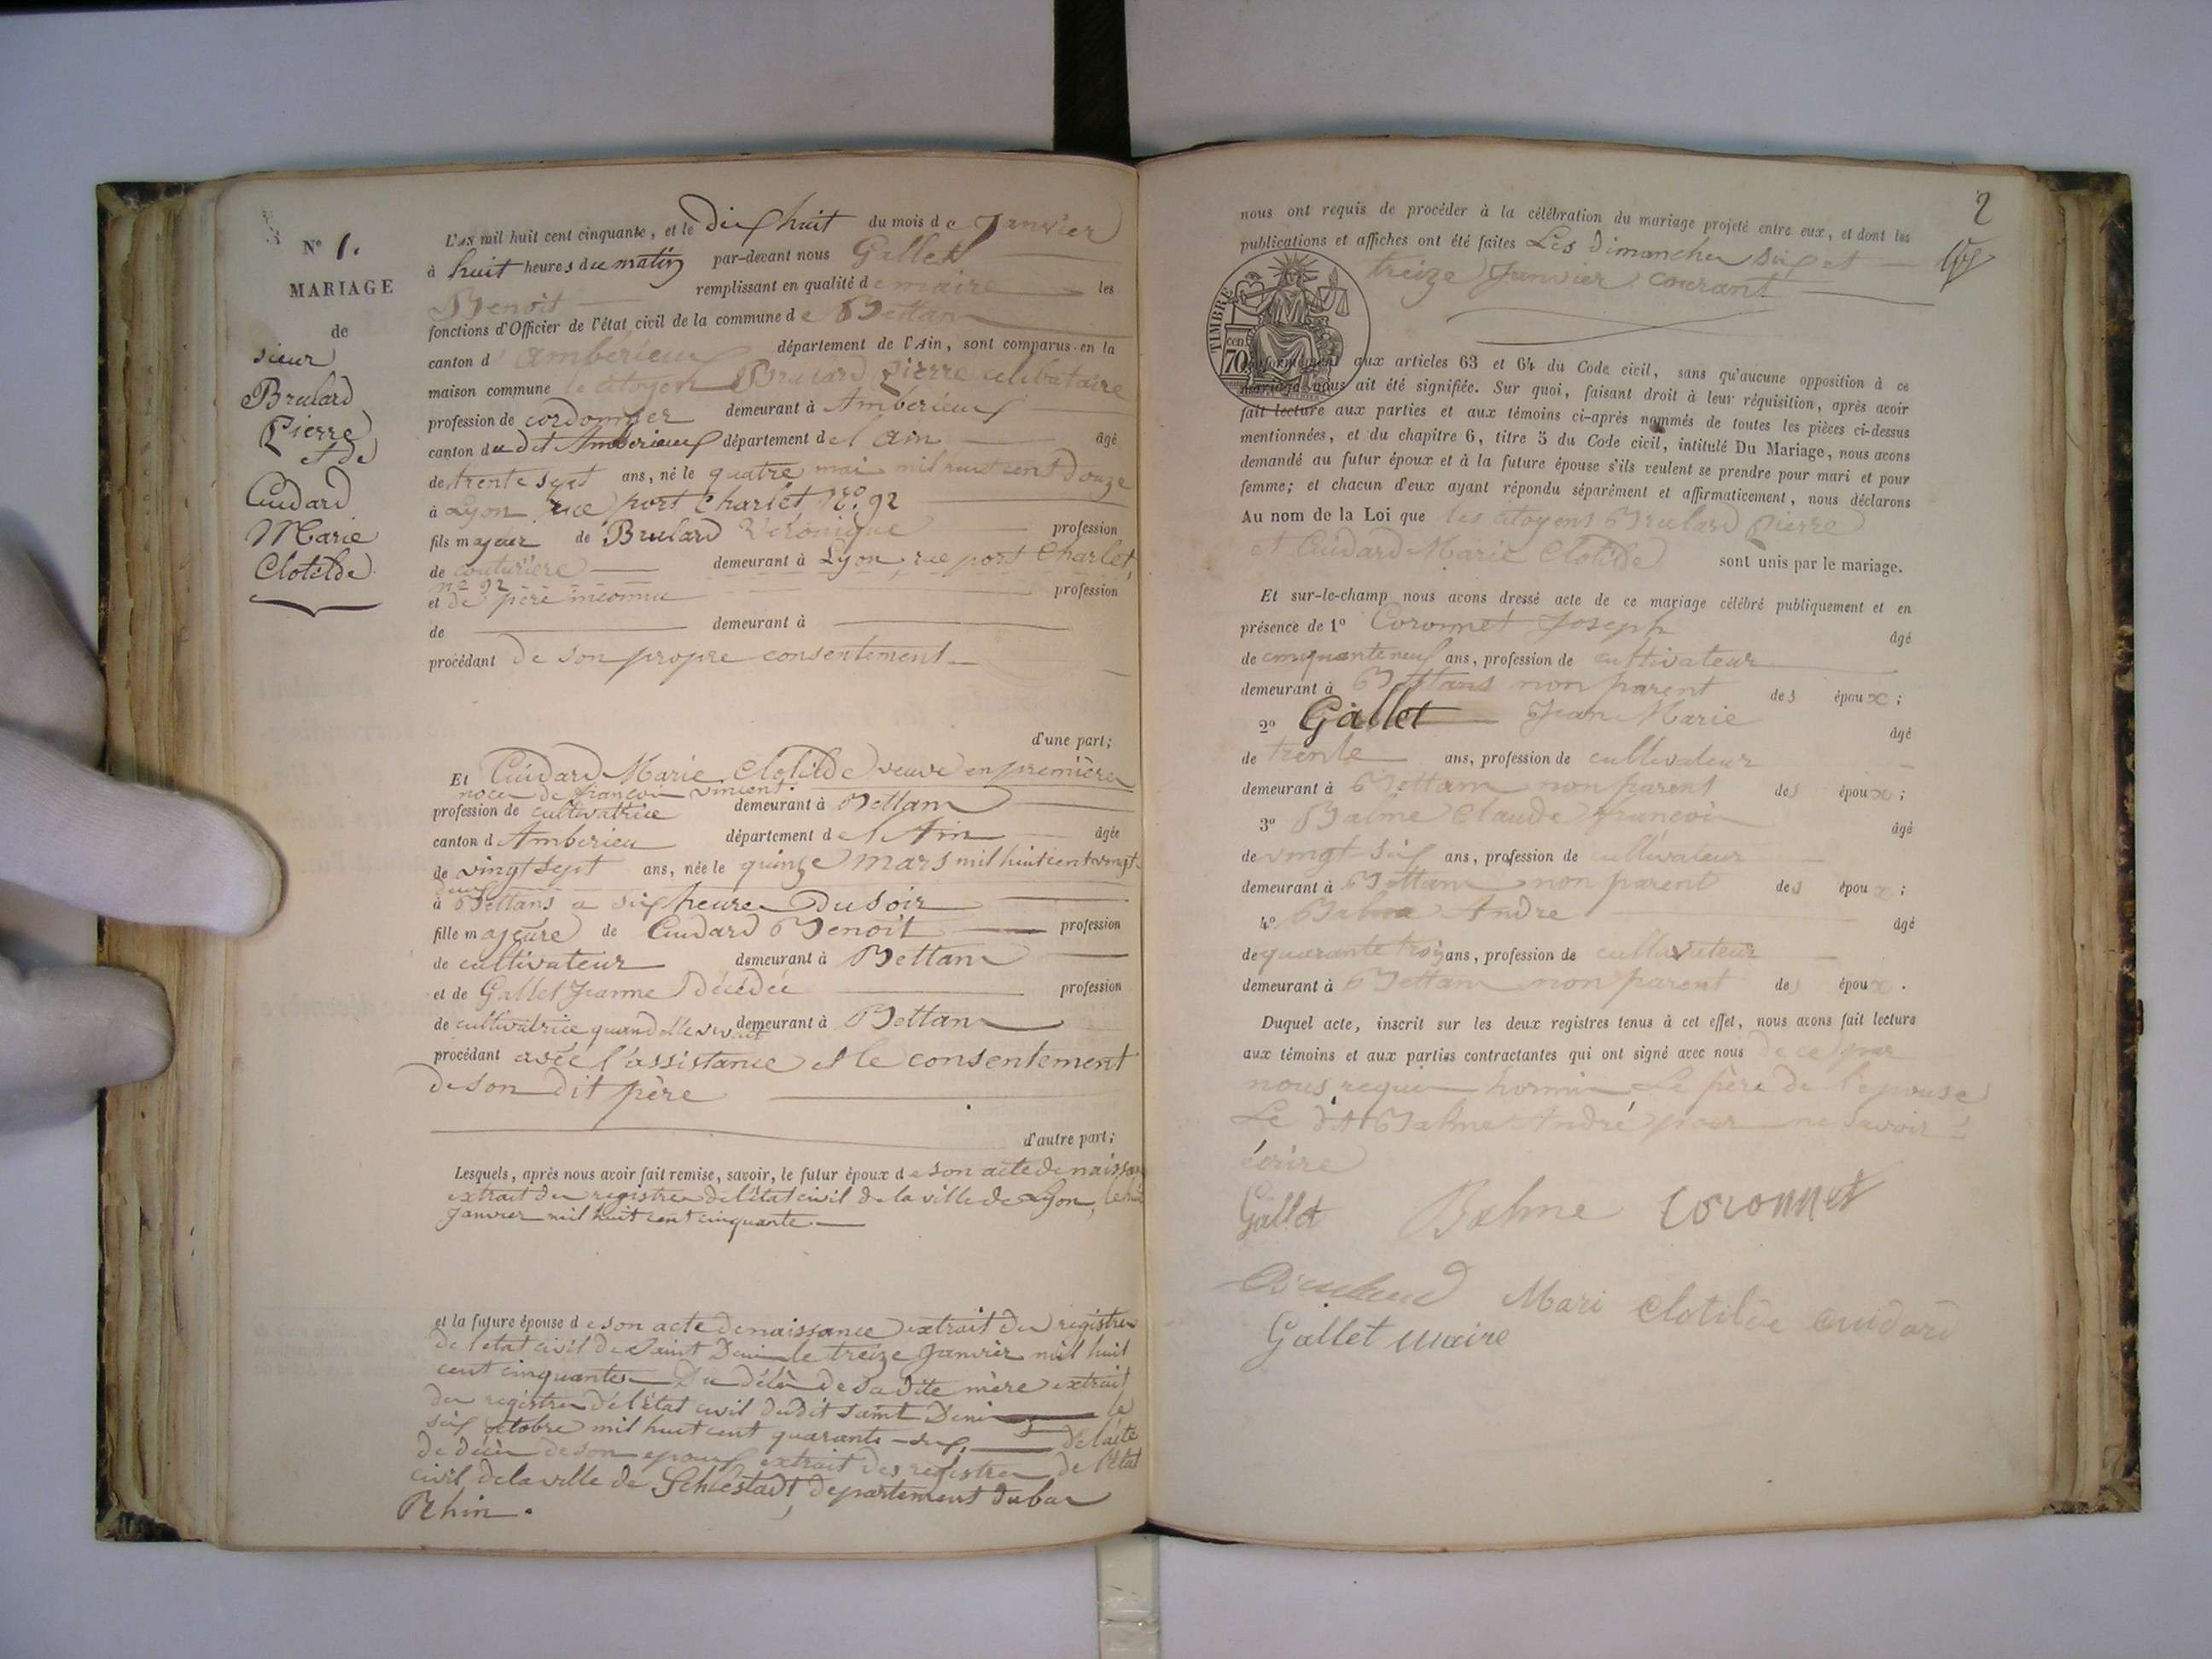 N° 1.
MARIAGE
de
sieur
Brulard
Pierre
et de
Cuidard
Marie
Clotilde
L'AN mil huit cent cinquante, et le dix huit du mois de Janvier
à huit heures du matin par-devant nous Gallet
Benoit remplissant en qualité de maire les
fonctions d'Officier de l'état civil de la commune de Bettans
canton d'Ambérieux département de l'Ain, sont comparus en la
maison commune le citoyen Brulard Pierre celibataire
profession de cordonnier demeurant à Amberieux
canton du dit Amberieux département de l'ain âgé
de trente sept ans, né le quatre mai mil huit cent douze
à Lyon rue port Charlet, N°. 92
fils majeur de Brulard Véronique profession
de couturière demeurant à Lyon, rue port Charlet,
n° 92
et de père inconnu profession
de demeurant à
procédant de son propre consentement
d'une part;
Et Cuidard Marie Clotilde veuve en première
noces de françois vincent.
profession de cultivatrice demeurant à Bettans
canton d'Amberieu département de l'Ain âgée
de vingt sept ans, née le quinze mars mil huit cent vingt
deux
à Bettans a six heures Du soir
fille majeure de Cuidard Benoit profession
de cultivateur demeurant à Bettans
et de Gallet Jeanne décédée profession
de cultivatrice quand elle vivait demeurant à Bettans
procédant avec l'assistance et le consentement
de son dit père
d'autre part;
Lesquels, après nous avoir fait remise, savoir, le futur époux de son acte de naissance
extrait des registres de l'état civil de la ville de Lyon,
Janvier mil huit cent cinquante
et la future épouse de son acte de naissance extrait des registres
de l'état civil de Saint Denis le treize Janvier mil huit
cent cinquante Du décès de sa dite mère extrait
des registres de l'état civil dudit saint Denis le
six octobre mil huit cent quarante-six, de l'acte
de décès de son epoux extrait des registres de l'état
civil de la ville de Schlestadt, departement du bas
Rhin.
2
nous ont requis de procéder à la célébration du mariage projeté entre eux, et dont les
publications et affiches ont été faites Les dimanches six et
treize Janvier courant
TIMBRE
70 cent
conformément aux articles 63 et 64 du Code civil, sans qu'aucune opposition à ce
mariage nous ait été signifiée. Sur quoi, faisant droit à leur réquisition, après avoir
fait lecture aux parties et aux témoins ci-après nommés de toutes les pièces ci-dessus
mentionnées, et du chapitre 6, titre 5 du Code civil, intitulé Du Mariage, nous avons
demandé au futur époux et à la future épouse s'ils veulent se prendre pour mari et pour
femme; et chacun d'eux ayant répondu séparément et affirmativement, nous déclarons
Au nom de la Loi que les citoyens Brulard Pierre
et Cuidard Marie Clotilde sont unis par le mariage.
Et sur-le-champ nous avons dressé acte de ce mariage célébré publiquement et en
présence de 1° Coronnet Joseph âgé
de cinquante neuf ans, profession de cultivateur
demeurant à Bettans non parent des époux;
2° Gallet Jean Marie âgé
de trente ans, profession de cultivateur
demeurant à Bettans non parent des époux;
3° Balme Claude françois âgé
de vingt-six ans, profession de cultivateur
demeurant à Bettans non parent des époux;
4° Balme André âgé
de quarante trois ans, profession de cultivateur
demeurant à Bettans non parent des époux.
Duquel acte, inscrit sur les deux registres tenus à cet effet, nous avons fait lecture
aux témoins et aux parties contractantes qui ont signé avec nous de ce
nous requis hormis Le père de l'epouse
Le dit Balme André pour ne savoir
écrire
Gallet Balme Coronnet
Brulard Mari Clotilde Cuidard
Gallet maire